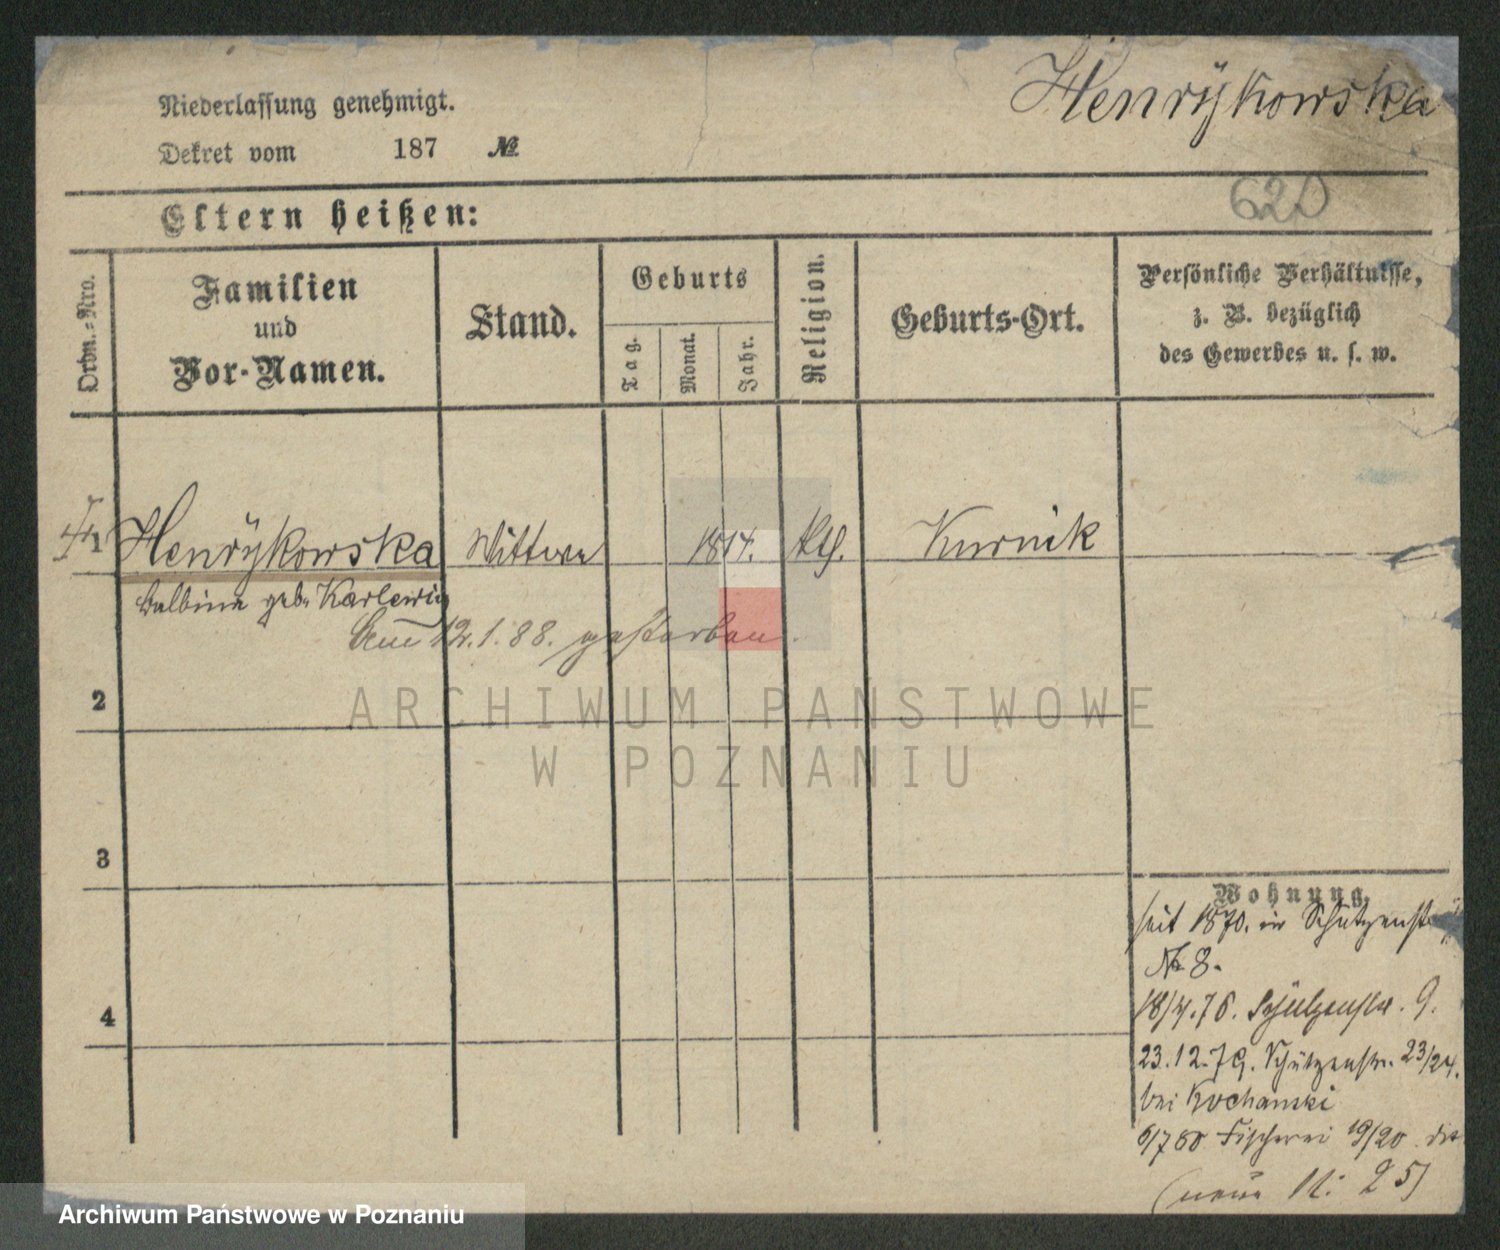 Henrÿkowska
Niederlassung genehmigt.
Dekret vom 187 №
620
Eltern heißen:
Ordn.-Nro.
Familien
und
Vor-Namen.
Stand.
Geburts
Tag.
Monat.
Jahr.
Religion.
Geburts-Ort.
Persönliche Verhältnisse,
z. B. bezüglich
des Gewerbes u. s. w.
1 Henrÿkowska Wittwe 1814. kth. Kurnik
Balbina geb. Karlewicz
Am 12.1.88. gestorben.
2
ARCHIWUM PAŃSTWOWE
W POZNANIU
3
4
Wohnung.
seit 1870. in Schützenstr
№ 8.
18/4.76. Schützenstr. 9.
23.12.79. Schützenstr. 23/24.
bei Kochanski
6/7 80 Fischerei 19/20
(neue N: 25)
Archiwum Państwowe w Poznaniu